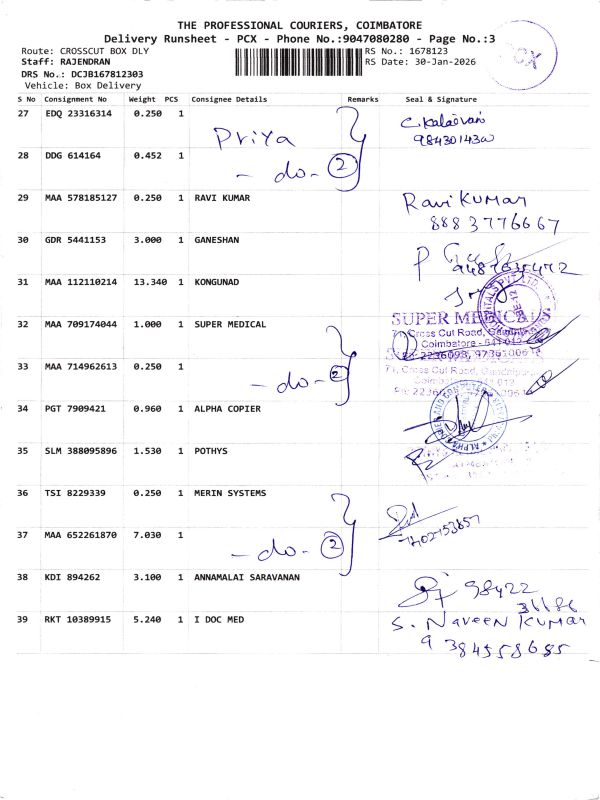 THE PROFESSIONAL COURIERS, COIMBATORE
Delivery Runsheet - PCX - Phone No.:9047080280 - Page No.:3
Route: CROSSCUT BOX DLY RS No.: 1678123
Staff: RAJENDRAN RS Date: 30-Jan-2026
DRS No.: DCJB167812303
Vehicle: Box Delivery
PCX
S No Consignment No Weight PCS Consignee Details Remarks Seal & Signature
27 EDQ 23316314 0.250 1 Priya
9843014300
28 DDG 614164 0.452 1 - do - 2
29 MAA 578185127 0.250 1 RAVI KUMAR Ravi KUMAR
8883776667
30 GDR 5441153 3.000 1 GANESHAN
31 MAA 112110214 13.340 1 KONGUNAD
32 MAA 709174044 1.000 1 SUPER MEDICAL SUPER MEDICALS
71, Cross Cut Road, Gandhipuram
Coimbatore - 641 012
Ph: 2236098, 9736100612
33 MAA 714962613 0.250 1 - do - 2
71, Cross Cut Road, Gandhipuram
34 PGT 7909421 0.960 1 ALPHA COPIER
35 SLM 388095896 1.530 1 POTHYS
36 TSI 8229339 0.250 1 MERIN SYSTEMS
7402753657
37 MAA 652261870 7.030 1 - do - 2
38 KDI 894262 3.100 1 ANNAMALAI SARAVANAN 98422
31186
39 RKT 10389915 5.240 1 I DOC MED S. NAVEEN KUMAR
9384558685